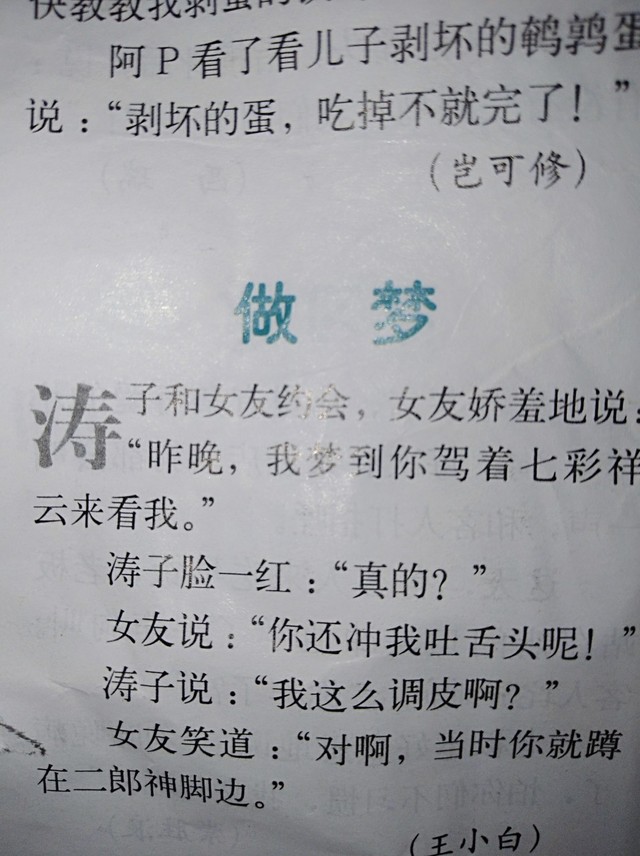 快教教我剥蛋的
阿P看了看儿子剥坏的鹌鹑蛋
说：“剥坏的蛋，吃掉不就完了！”
（岂可修）
做 梦
涛子和女友约会，女友娇羞地说：
“昨晚，我梦到你驾着七彩祥
云来看我。”
涛子脸一红：“真的？”
女友说：“你还冲我吐舌头呢！”
涛子说：“我这么调皮啊？”
女友笑道：“对啊，当时你就蹲
在二郎神脚边。”
（王小白）